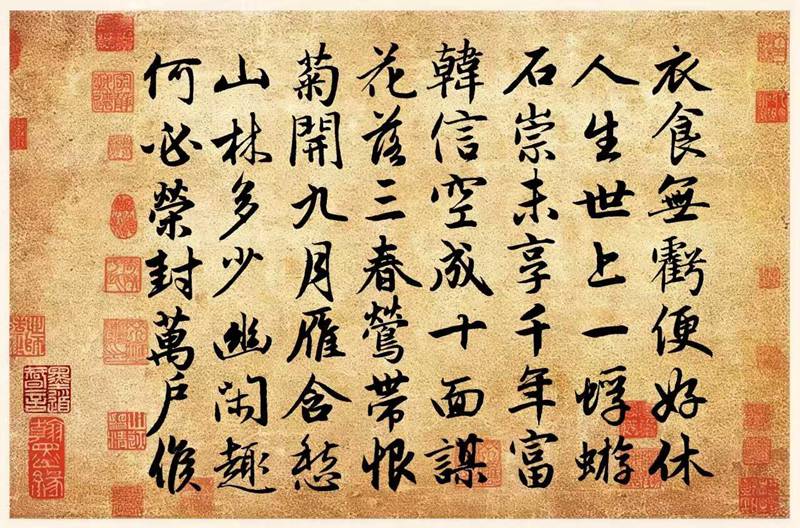 衣食無虧便好休
人生世上一蜉蝣
石崇未享千年富
韓信空成十面謀
花落三春鶯帶恨
菊開九月雁含愁
山林多少幽閑趣
何必榮封萬戶侯